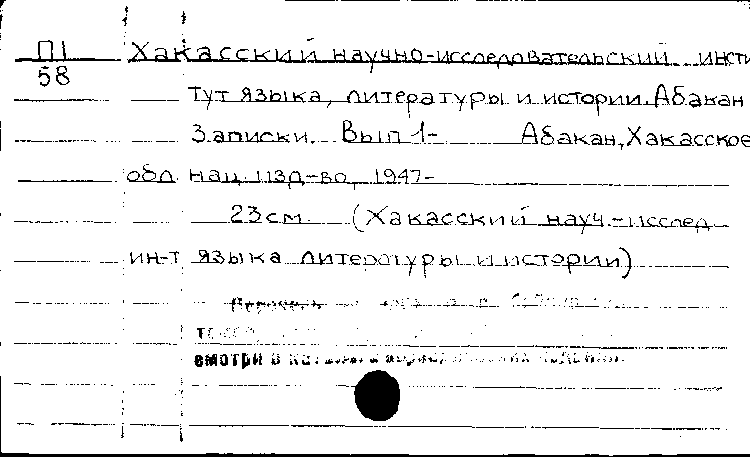 П1 Хакасский научно-исследовательский инсти
58
тут языка, литературы и истории. Абакан
Записки. Вып 1- Абакан, Хакасское
обл нац. изд-во, 1947-
23 см. (Хакасский науч.-исслед
ин-т языка литературы и истории)
Перечень
смотри в